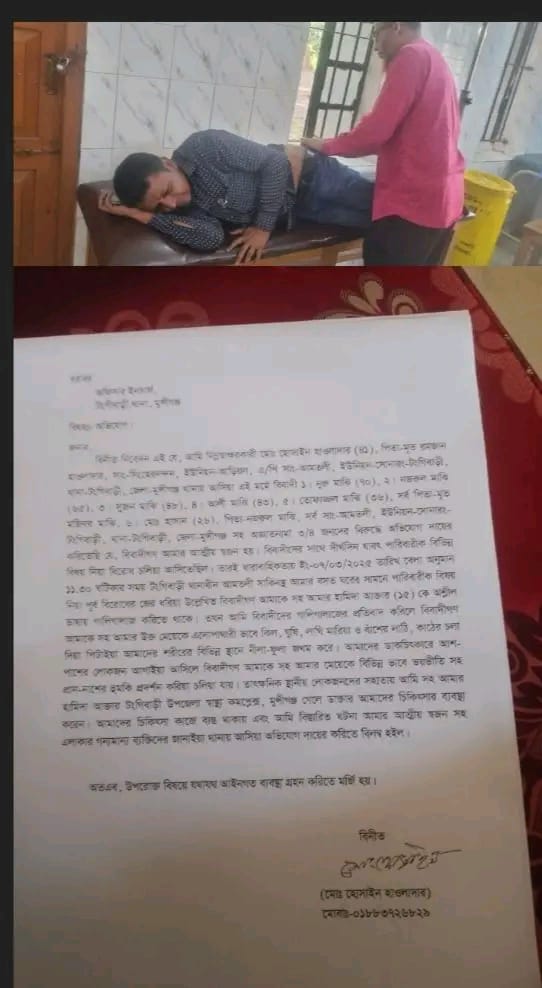 বরাবর
অফিসার ইনচার্জ,
টংগীবাড়ী থানা, মুন্সীগঞ্জ
বিষয়ঃ অভিযোগ।
জনাব,
বিনীত নিবেদন এই যে, আমি নিম্নস্বাক্ষরকারী মোঃ হোসাইন হাওলাদার (৪১), পিতা-মৃত রমজান
হাওলাদার, সাং- ইউনিয়ন-আড়িয়ল, এ/পি সাং-আমতলী, ইউনিয়ন-সোনারং-টংগিবাড়ী,
থানা-টংগিবাড়ী, জেলা-মুন্সীগঞ্জ থানায় আসিয়া এই মর্মে বিবাদী ১। নুরু মাঝি (৭০), ২। নজরুল মাঝি
(৬৫), ৩। সুজন মাঝি (৪৮), ৪। আলী মাঝি (৪৩), ৫। তোফাজ্জল মাঝি (৩৬), সর্ব পিতা-মৃত
মাঝি, ৬। মোঃ হাসান (২৬), পিতা-নজরুল মাঝি, সর্ব সাং-আমতলী, ইউনিয়ন-সোনারং-
টংগিবাড়ী, থানা-টংগিবাড়ী, জেলা-মুন্সীগঞ্জ সহ অজ্ঞাতনামা ৩/৪ জনদের বিরুদ্ধে অভিযোগ দায়ের
করিতেছি যে, বিবাদীগণ আমার আত্মীয় স্বজন হয়। বিবাদীদের সাথে দীর্ঘদিন যাবৎ পারিবারীক বিভিন্ন
বিষয় নিয়া বিরোধ চলিয়া আসিতেছিল। তারই ধারাবাহিকতায় ইং-০৭/০৩/২০২৫ তারিখ বেলা অনুমান
১১.৩০ ঘটিকার সময় টংগিবাড়ী থানাধীন আমতলী সাকিনস্থ আমার বসত ঘরের সামনে পারিবারীক বিষয়
নিয়া পূর্ব বিরোধের জের ধরিয়া উল্লেখিত বিবাদীগণ আমাকে সহ আমার হামিদা আক্তার (১৫) কে অশ্লীল
ভাষায় গালিগালাজ করিতে থাকে। তখন আমি বিবাদীদের গালিগালাজের প্রতিবাদ করিলে বিবাদীগণ
আমাকে সহ আমার উক্ত মেয়েকে এলোপাথারী ভাবে কিল, ঘুষি, লাথি মারিয়া ও বাঁশের লাঠি, কাঠের চলা
দিয়া পিটাইয়া আমাদের শরীরের বিভিন্ন স্থানে নীলা-ফুলা জখম করে। আমাদের ডাকচিৎকারে আশ-
পাশের লোকজন আগাইয়া আসিলে বিবাদীগণ আমাকে সহ আমার মেয়েকে বিভিন্ন ভাবে ভয়ভীতি সহ
প্রাণ-নাশের হুমকি প্রদর্শন করিয়া চলিয়া যায়। তাৎক্ষনিক স্থানীয় লোকজনদের সহায়তায় আমি সহ আমার
হামিদা আক্তার টংগিবাড়ী উপজেলা স্বাস্থ্য কমপ্লেক্স, মুন্সীগঞ্জ গেলে ডাক্তার আমাদের চিকিৎসার ব্যবস্থা
করেন। আমাদের চিকিৎসা কাজে ব্যস্ত থাকায় এবং আমি বিস্তারিত ঘটনা আমার আত্মীয় স্বজন সহ
এলাকার গন্যমান্য ব্যক্তিদের জানাইয়া থানায় আসিয়া অভিযোগ দায়ের করিতে বিলম্ব হইল।
অতএব, উপরোক্ত বিষয়ে যথাযথ আইনগত ব্যবস্থা গ্রহন করিতে মর্জি হয়।
বিনীত
(মোঃ হোসাইন হাওলাদার)
মোবাঃ-০১৮৮৩৭২৬৮২৯